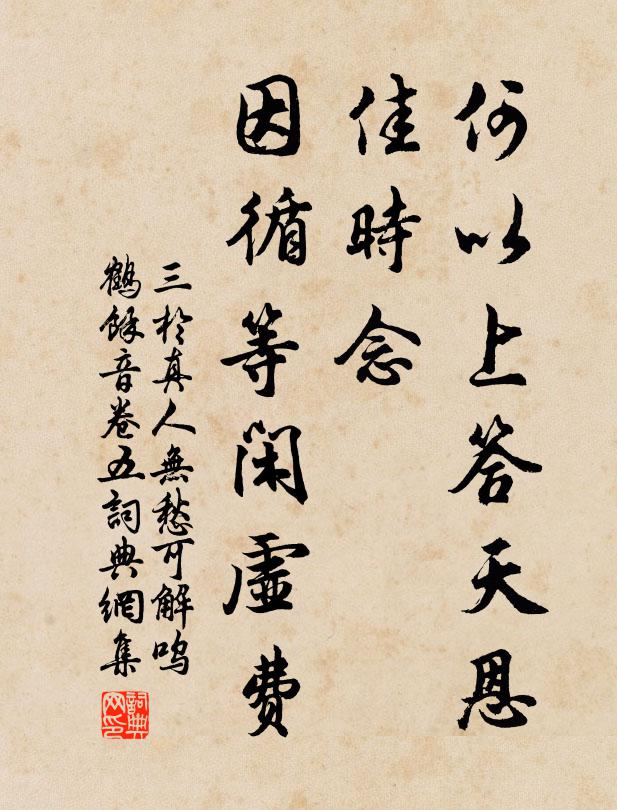 何以上答天恩
佳時念
因循等閑虛費
三於真人無愁可解鳴
鶴餘音卷五詞典網集
詞典
网印